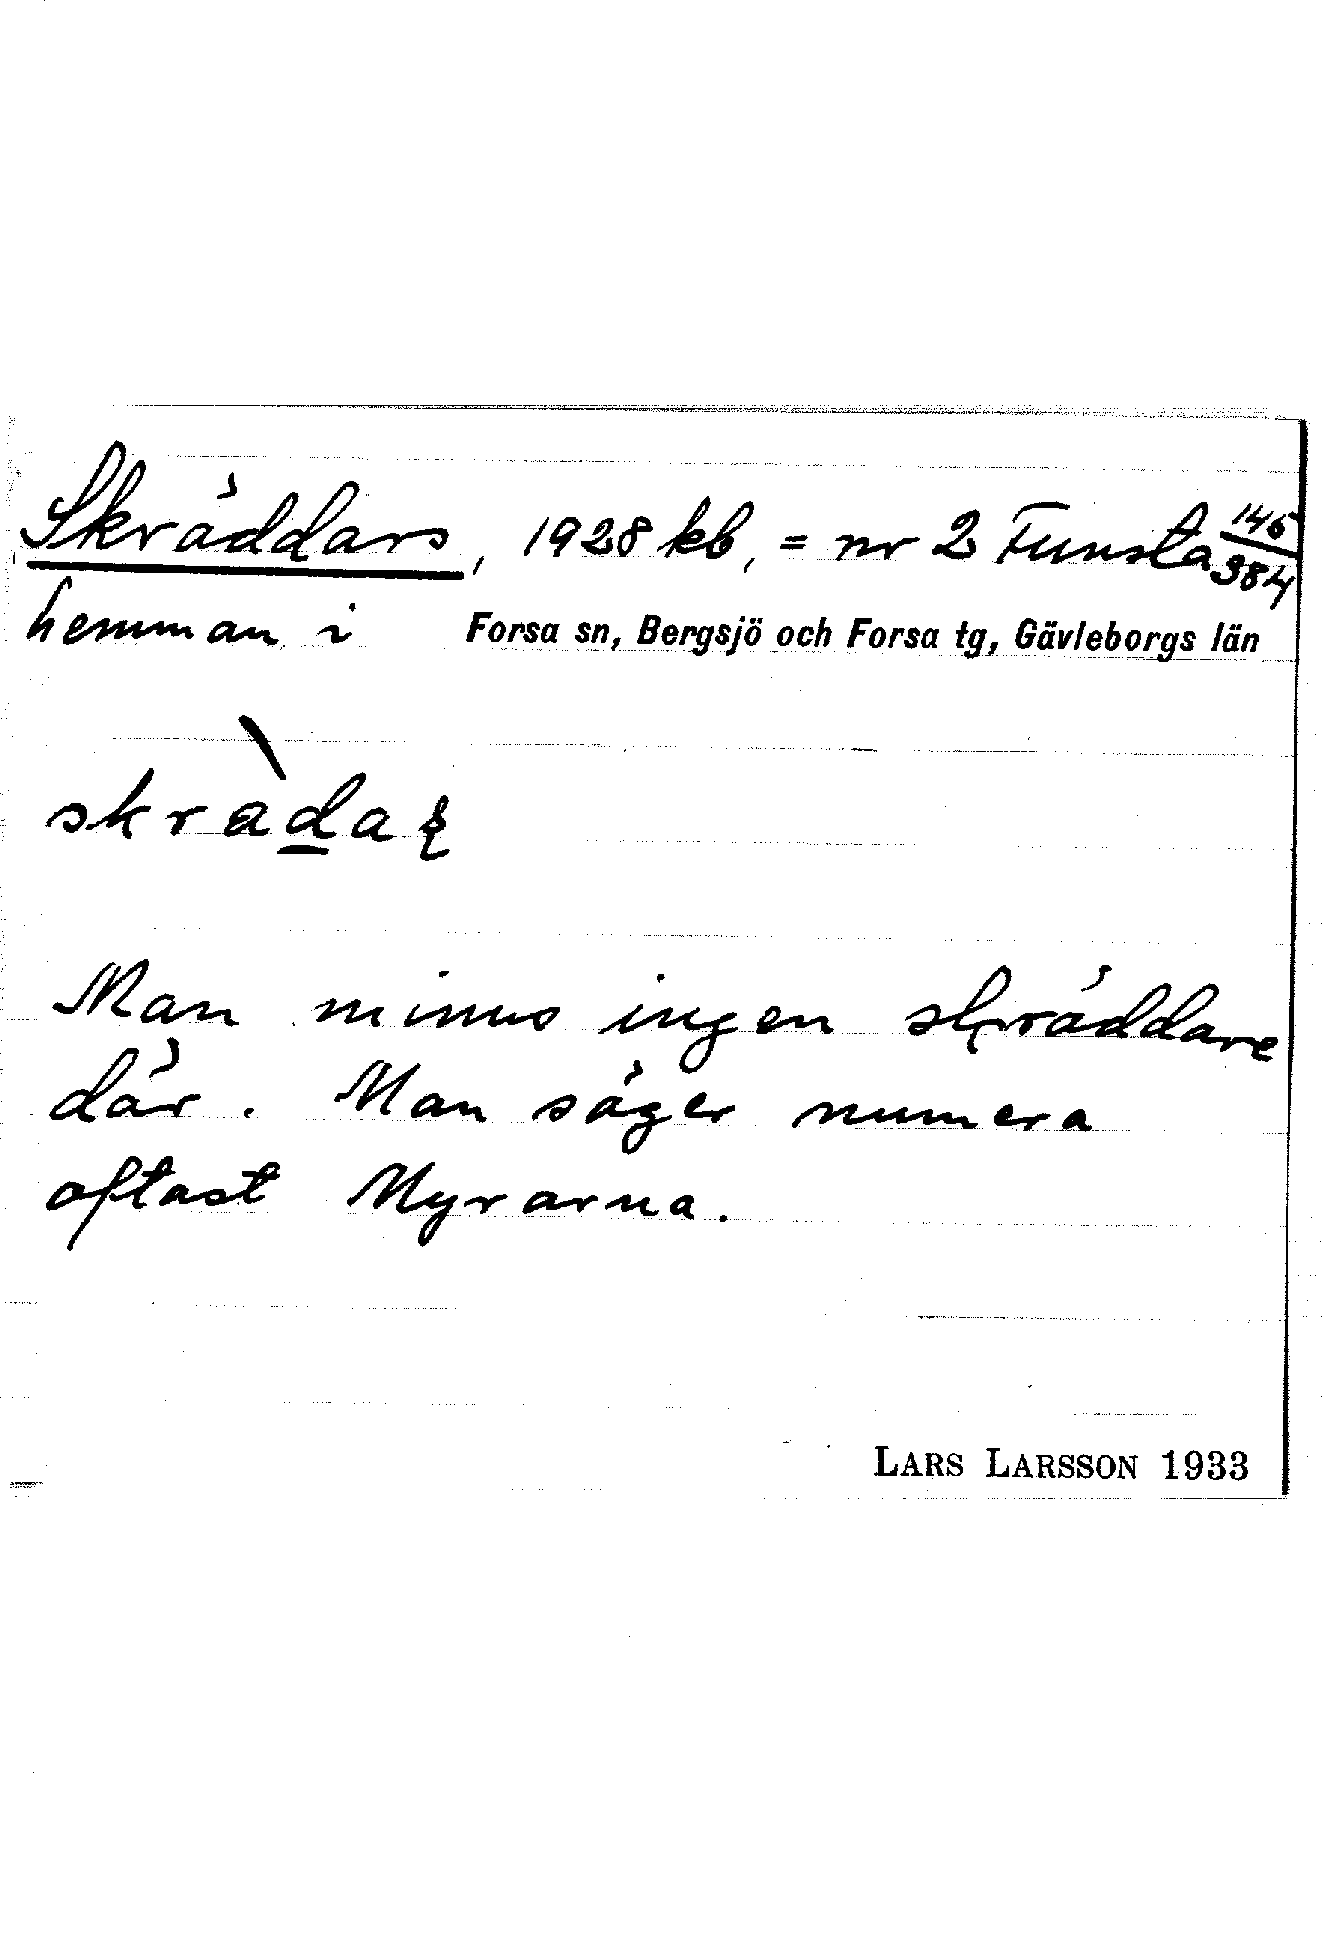 Skräddars, 1928 kb, = nr 2 Funsta 145/384
hemman i Forsa sn, Bergsjö och Forsa tg, Gävleborgs län
Man minns ingen skräddare
där. Man säger numera
oftast Myrarna.
LARS LARSSON 1933